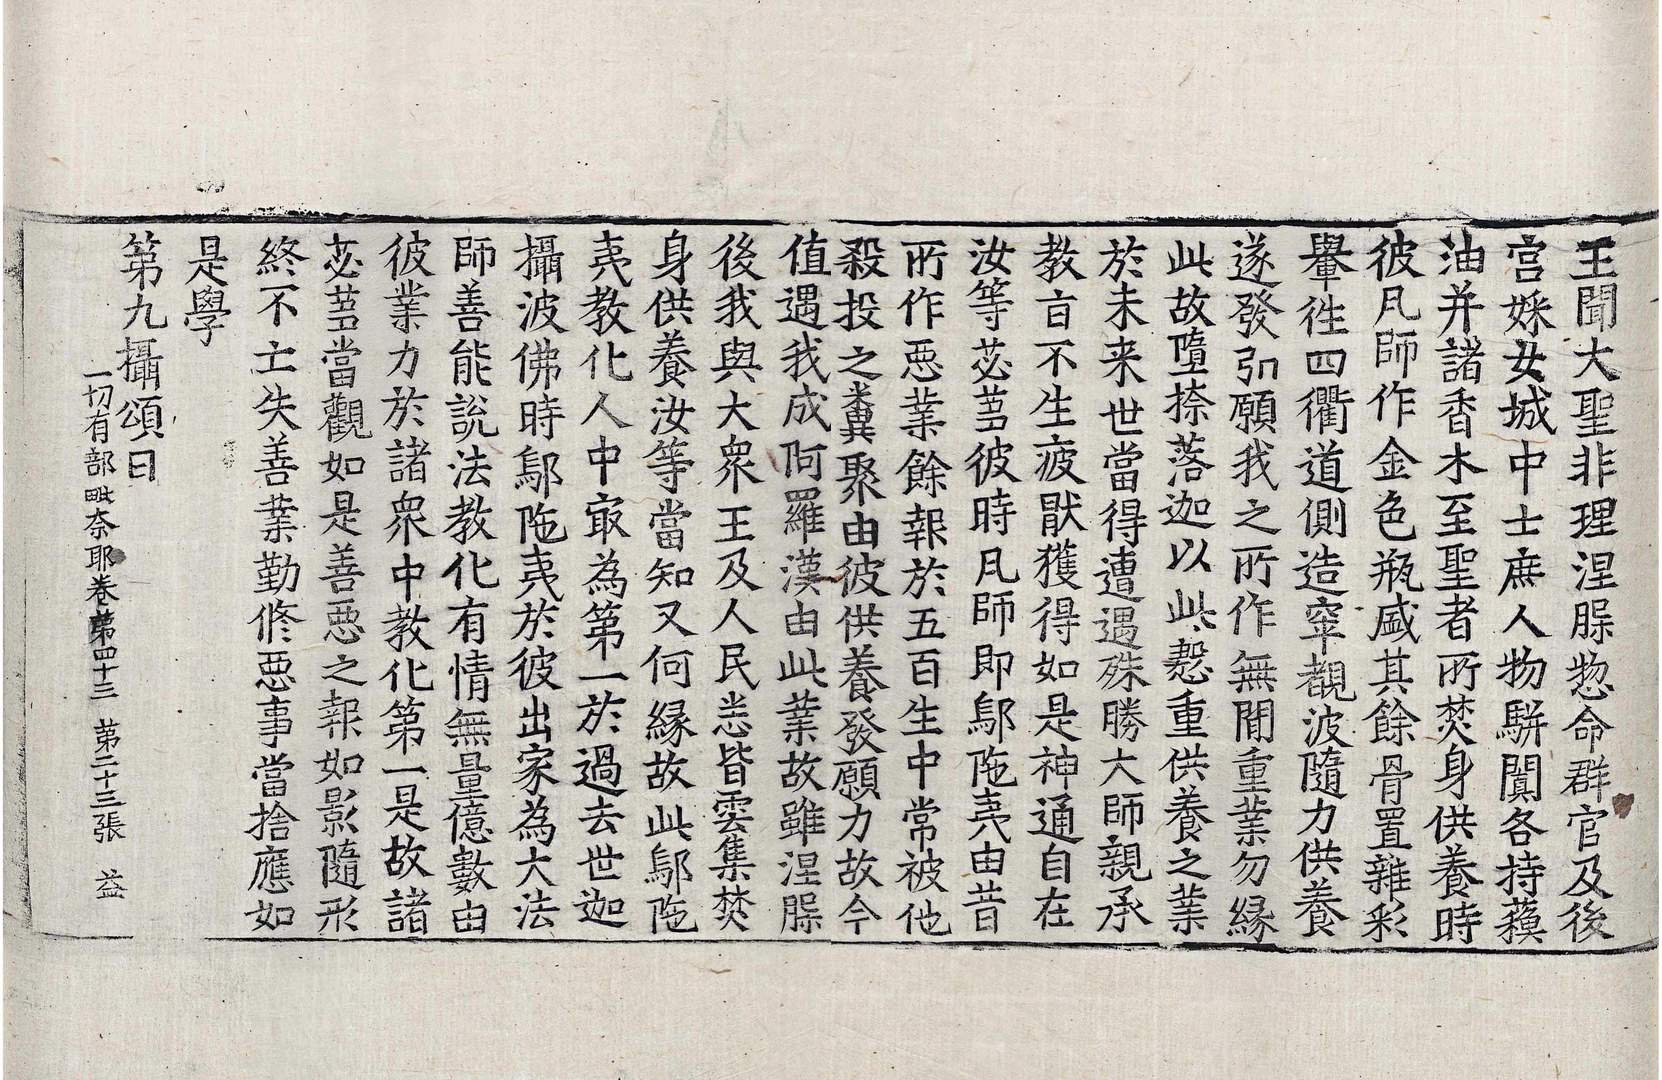 王聞大聖非理涅槃愁命群官及後
宮婇女城中士庶人物駢闐各持蘓
油并諸香木至聖者所焚身供養時
彼凡師作金色瓶盛其餘骨置雜彩
轝徃四衢道側造窣覩波隨力供養
遂發引願我之所作無間重業勿縁
此故墮捺落迦以此慇重供養之業
於未来世當得遭遇殊勝大師親承
教盲不生疲猒獲得如是神通自在
汝等苾蒭彼時凡師即鄔陁夷由昔
所作惡業餘報於五百生中常被他
殺投之糞聚由彼供養發願力故今
值遇我成阿羅漢由此業故雖涅槃
後我與大衆王及人民悉皆雲集焚
身供養汝等當知又何縁故此鄔陁
夷教化人中㝡為第一於過去世迦
攝波佛時鄔陁夷於彼出家為大法
師善能說法教化有情無量億數由
彼業力於諸衆中教化第一是故諸
苾蒭當觀如是善惡之報如影隨形
終不亡失善業勤修惡事當捨應如
是學
第九攝頌曰
一切有部毗奈耶卷第四十三 第二十三張 益